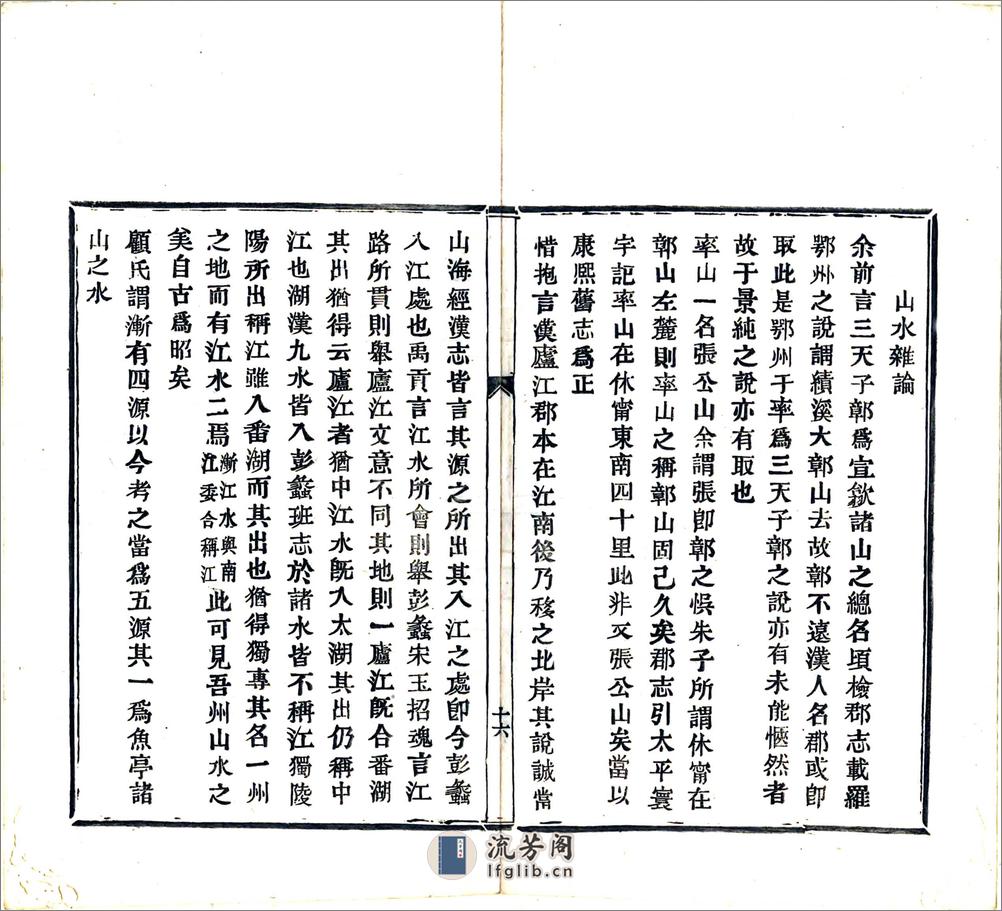 山水雜論
余前言三天子鄣爲宣歙諸山之總名頃檢郡志載羅
鄂州之說謂績溪大鄣山去故鄣不遠漢人名郡或卽
取此是鄂州于率爲三天子鄣之說亦有未能愜然者
故于景純之說亦有取也
率山一名張公山余謂張卽鄣之悞朱子所謂休甯在
鄣山左麓則率山之稱鄣山固已久矣郡志引太平寰
宇記率山在休甯東南四十里此非又張公山矣當以
康熙舊志爲正
惜抱言漢廬江郡本在江南後乃移之北岸其說誠當
十六
山海經漢志皆言其源之所出其入江之處卽今彭蠡
入江處也禹貢言江水所會則舉彭蠡宋玉招魂言江
路所貫則舉廬江文意不同其地則一廬江旣合番湖
其出猶得云廬江者猶中江水旣入太湖其出仍稱中
江也湖漢九水皆入彭蠡班志於諸水皆不稱江獨陵
陽所出稱江雖入番湖而其出也猶得獨專其名一州
之地而有江水二焉漸江水與南江委合稱江此可見吾州山水之
美自古爲昭矣
顧氏謂漸有四源以今考之當爲五源其一爲魚亭諸
山之水
流芳阁
lfglib.cn